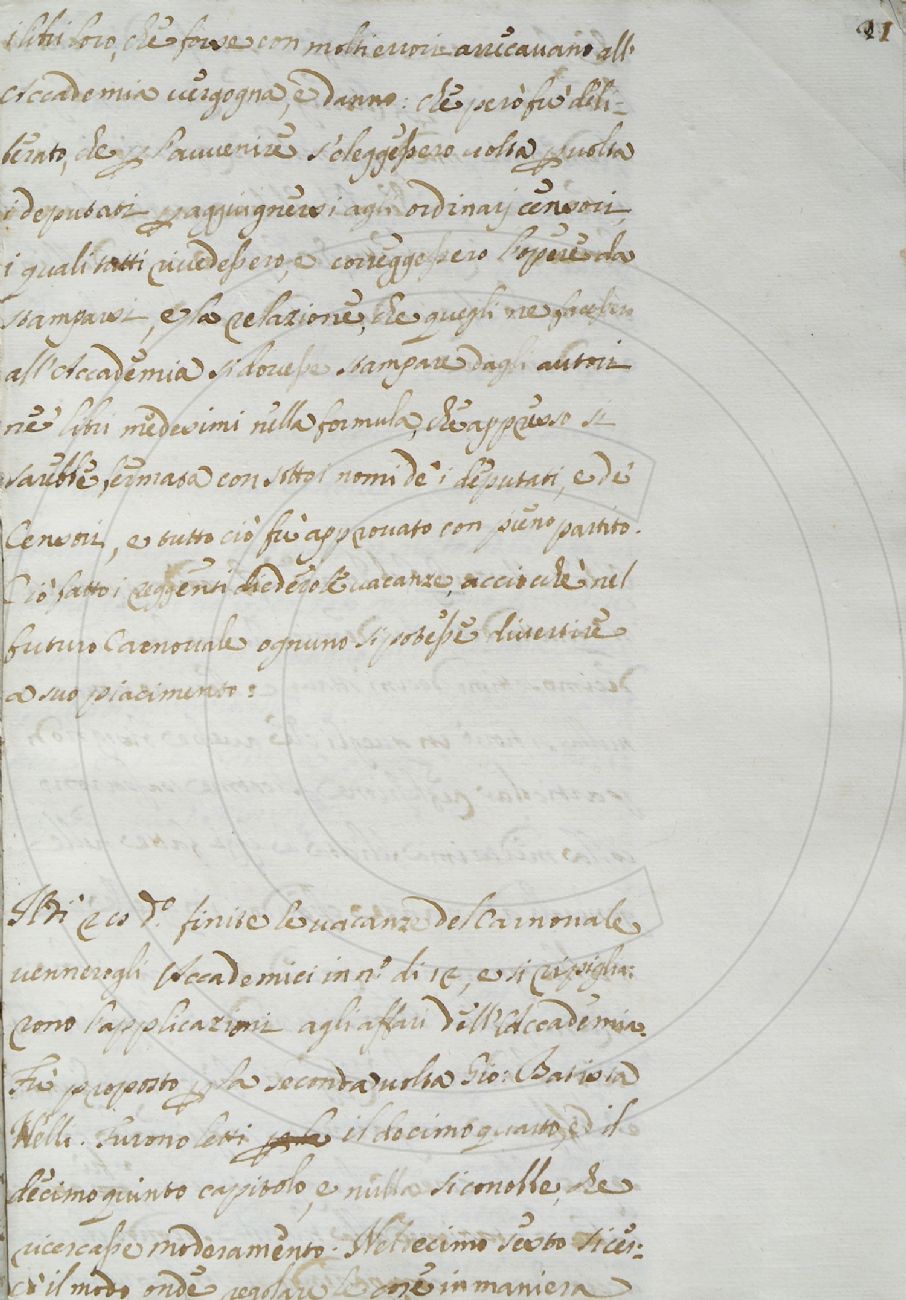 21
i libri loro, che forse con molti errori arrecavano all'
Accademia vergogna, e danno: che però fù deli-
berato, che p l'avvenire s'eleggessero volta p volta
i deputati p aggiugnersi agli ordinarj censori,
i quali tutti rivedessero, e correggessero l'opere da
stamparsi, e la relazione, che quegli ne facessero
all'Accademia si dovesse stampare dagli autori
ne' libri medesimi nella formula, che appresso si
sarebbe fermata con sotto i nomi de' i deputati, e de'
Censori, e tutto ciò fù approvato con pieno partito.
Ciò fatto i reggenti diedero le vacanze, acciochè nel
futuro Carnovale ognuno si potesse divertire
a suo piacimento:
Il dì 20 d.º finite le vacanze del Carnovale
vennero gli Accademici in n.º di 12, e si ripiglia-
rono l'applicazioni agli affari dell'Accademia.
Fù proposto p la seconda volta Gio: Batista
Nelli. Furono letti il decimo quarto, ed il
decimo quinto capitolo, e nulla si conobbe, che
ricercasse moderamento. Nel decimo sesto si cer-
cò il modo onde regolare le cose in maniera